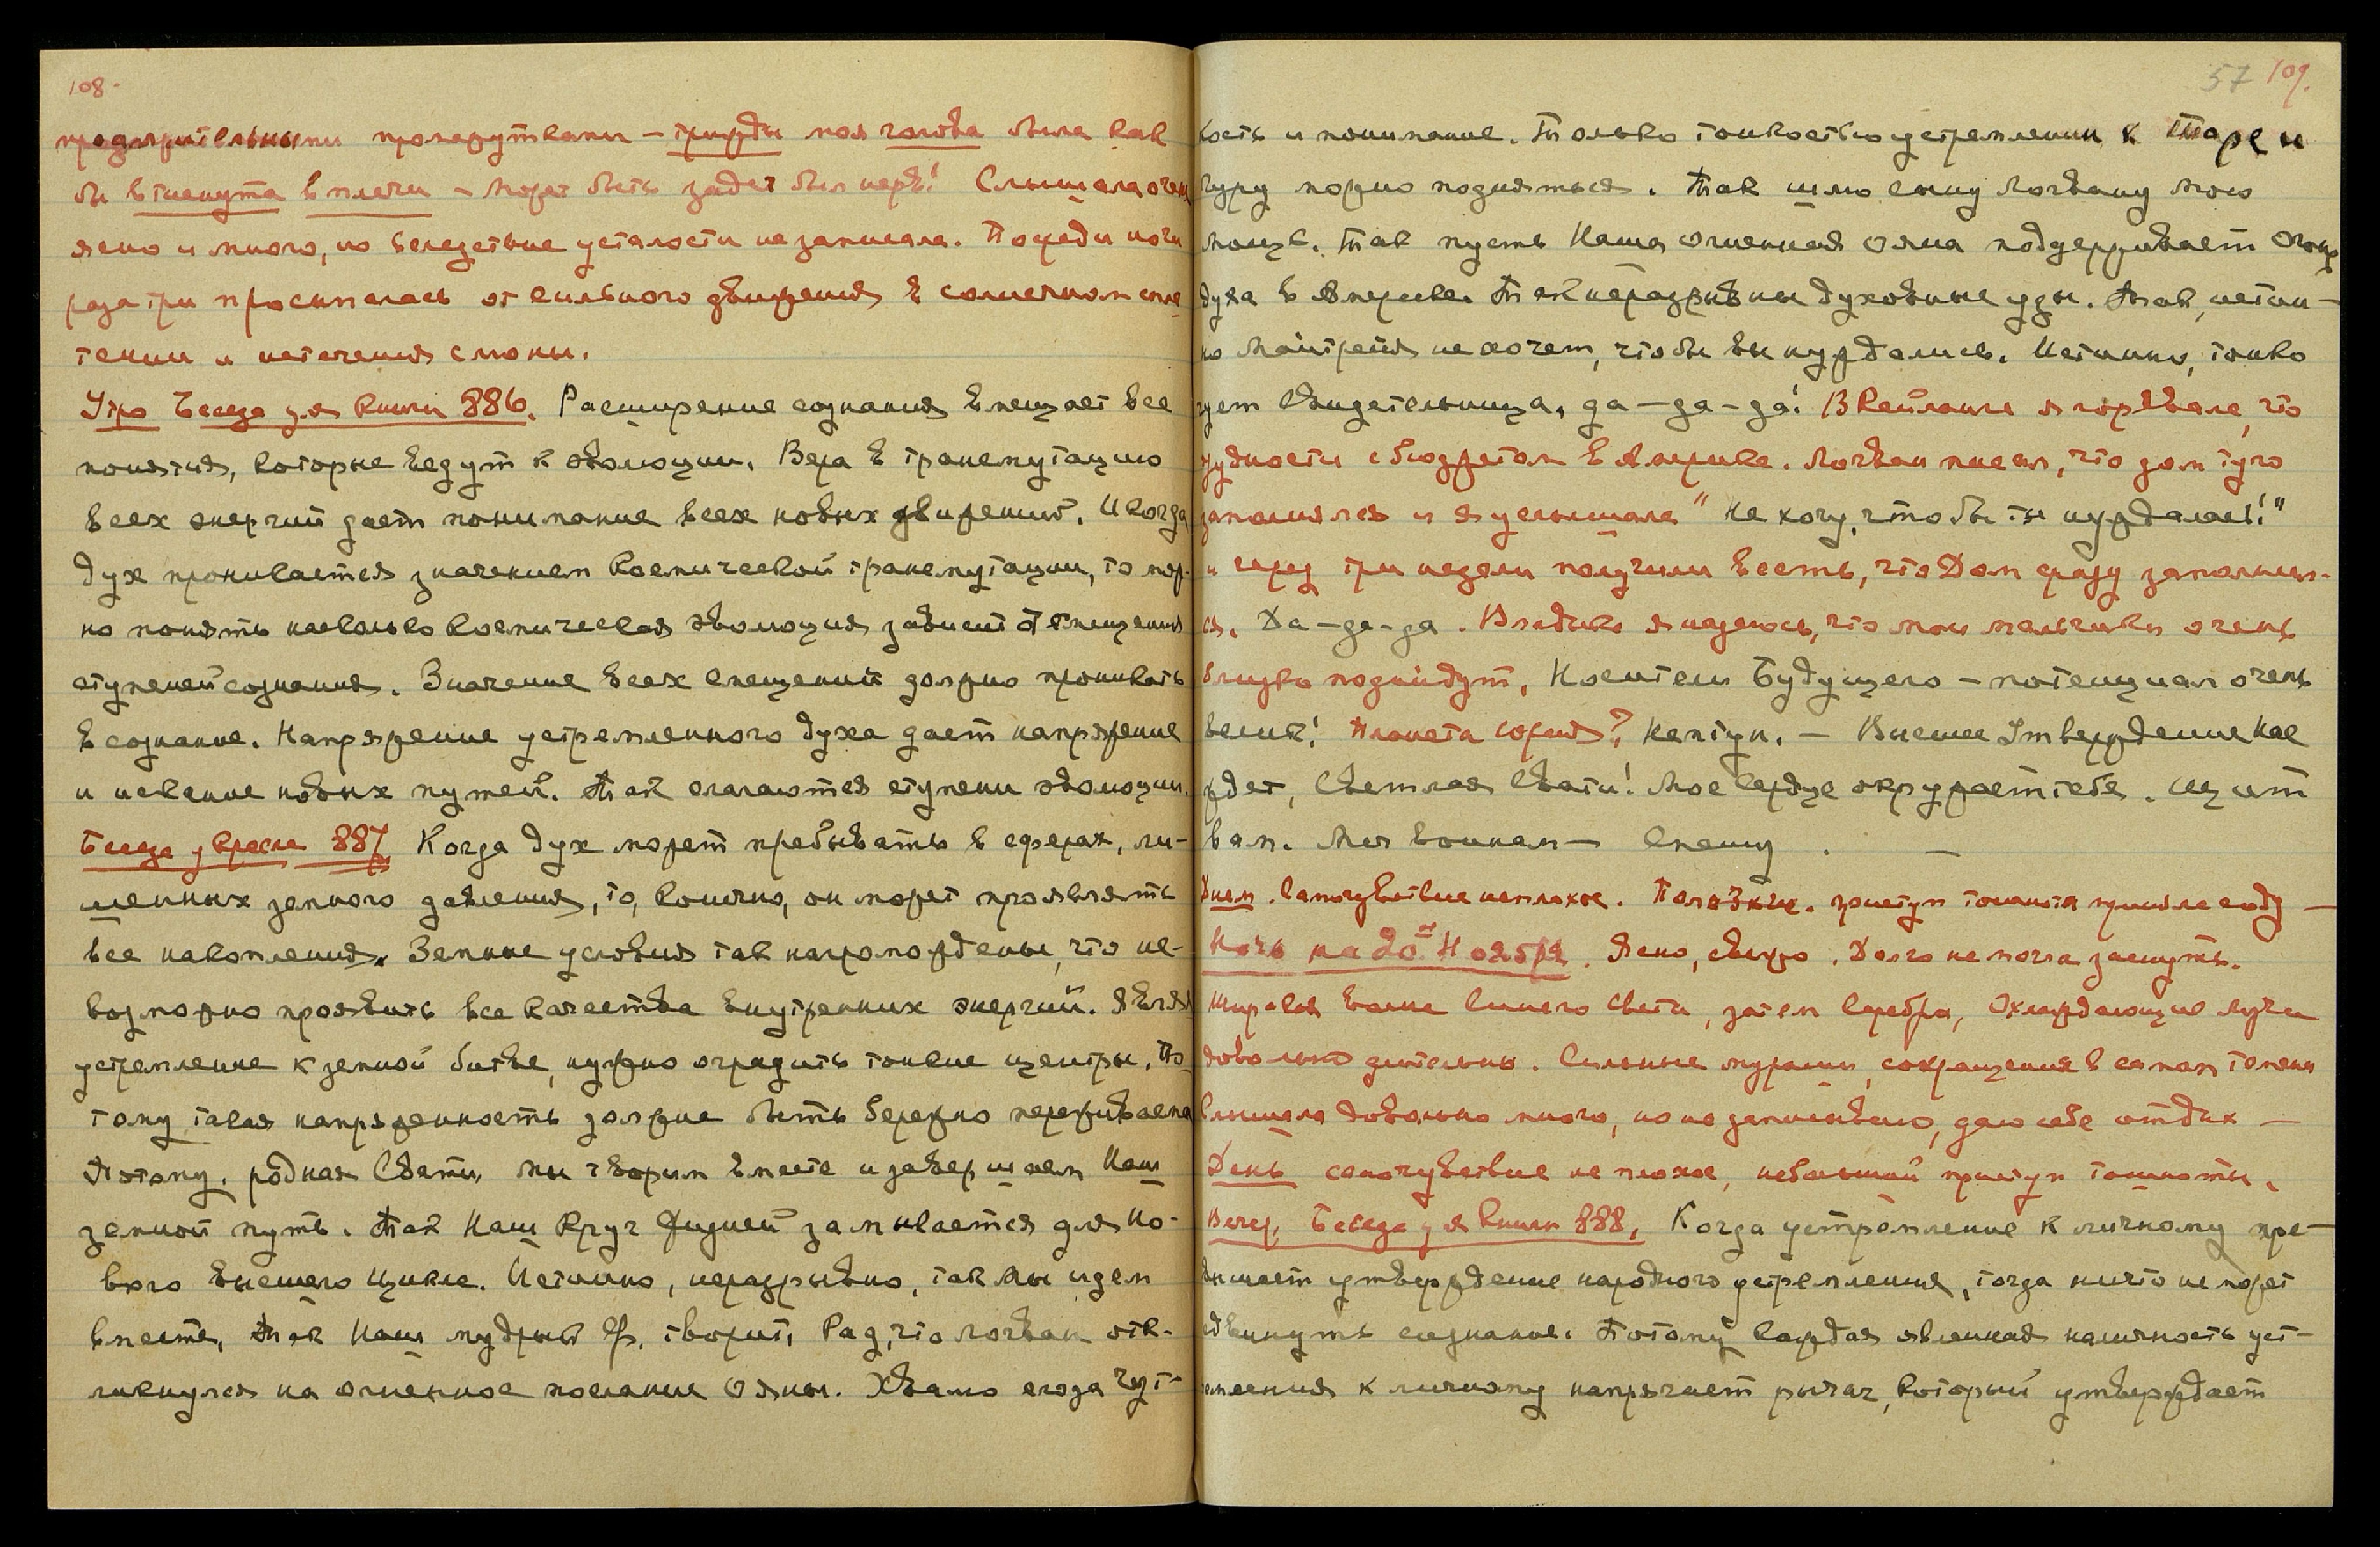 108.
предварительными промежутками – трижды моя голова была как
бы втянута в плечи – может быть задет был нерв! Слышала очень
ясно и много, но вследствие усталости не записала. Посреди ночи
раза три просыпалась от сильного движения в солнечном спле
тении и истечения слюны.
Утро Беседа для Книги 886. Расширение сознания вмещает все
понятия, которые ведут к эволюции. Вера в трансмутацию
всех энергий дает понимание всех новых движений. И когда
дух проникается значением Космической трансмутации, то мож-
но понять насколько Космическая эволюция зависит от вмещения
ступеней сознания. Значение всех смещений должно проникать
в сознание. Напряжение устремленного духа дает напряжение
и искание новых путей. Так слагаются ступени эволюции.
Беседа у Кресла 887 Когда дух может пребывать в сферах, ли-
шенных земного давления, то, конечно, он может проявлять
все накопления. Земные условия так нагромождены, что не-
возможно проявить все качества внутренних энергий. Являя
устремление к земной битве, нужно оградить тонкие центры. По
тому такая напряженность должна быть бережно переживаема
Потому, родная Свати, мы творим вместе и завершаем Наш
земной путь. Так Наш Круг Жизней замыкается для Но-
вого высшего Цикла. Истинно, неразрывно, так мы идем
вместе, Так Наш мудрый Ф. творит, Рад, что Логван отк-
ликнулся на огненное послание Ояны. Хвалю слоза чут-
57 109.
кость и понимание. Только тонкостью устремления к Таре и
Гуру можно подняться. Так шлю сыну Логвану мою
мощь. Так пусть Наша огненная Ояна поддерживает огонь
духа в Америке. Так неразрывны духовные узы. Так, истин-
но Майтрейя не хочет, чтобы вы нуждались. Истинно, тонко
чует Свидетельница, да – да – да! В Кейланге я горевала, что
трудности с бюджетом в Америке. Логван писал, что дом туго
заполнялся и я услышала "не хочу, чтобы ты нуждалась!"
и через три недели получили весть, что Дом сразу заполнил-
ся. Да – да – да. Владыка я надеюсь, что мои мальчики очень
близко подойдут. Носители Будущего – потенциал очень
велик! Планета горит? Нептун. – Высшее Утверждение Нас
ждет, Светлая Свати! Мое Сердце окружает тебя. Щит
вам. Меч воинам – Спешу. –
Днем. Самочувствие неплохое. приступ тошноты –
Ночь на 20ое Ноября. Ясно, свежо. Долго не могла заснуть.
Широкая волна синего света, затем Серебра, Охлаждающие лучи
довольно длительны. Сильные мурашки, сокращения в самом темени
Слышала довольно много, но не записываю, даю себе отдых –
День самочувствие не плохое, небольшой приступ тошноты.
Вечер. Беседа для Книги 888. Когда устремление к личному пре-
вышает утверждение народного устремления, тогда ничто не может
сдвинуть сознание. Потому каждая явленная наличность уст-
ремления к личному напрягает рычаг, который утверждает